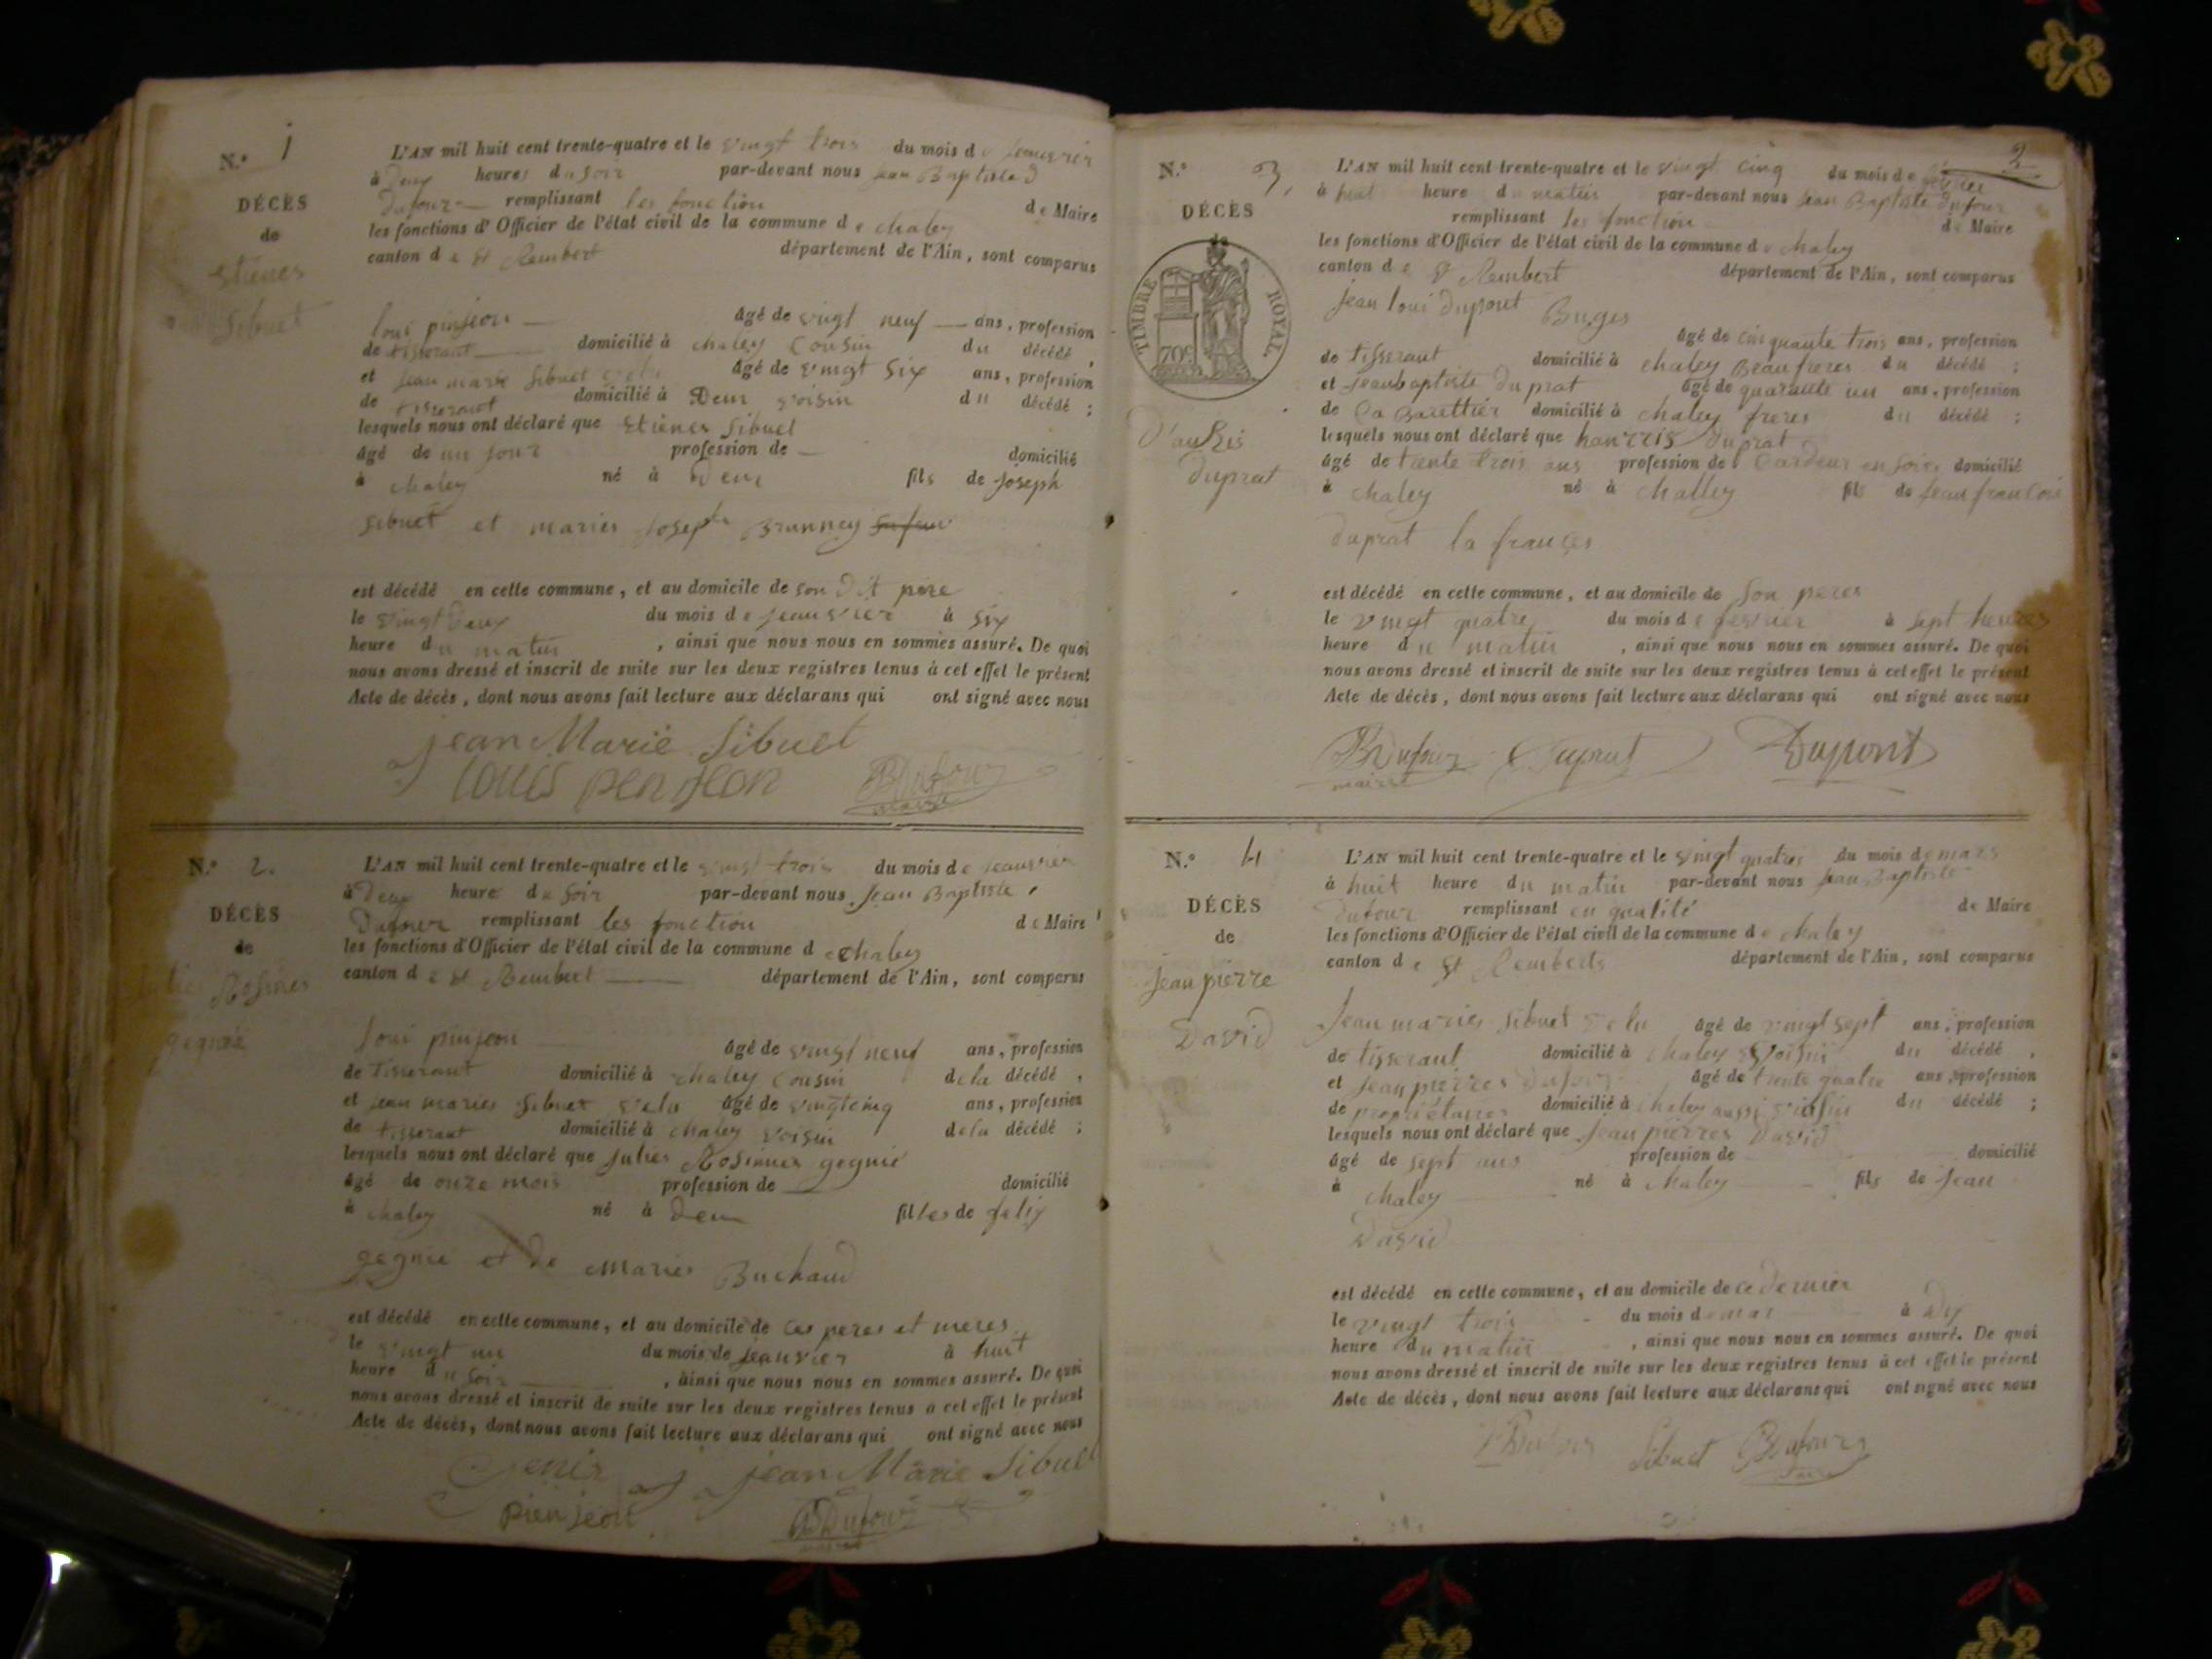 N.° 1
DÉCÈS
de
Stiènes
Sibuet
L'AN mil huit cent trente-quatre et le vingt trois du mois de jeanvier
à Deux heures du soir par-devant nous jean Baptiste
Dufour remplissant les fonction de Maire
les fonctions d'Officier de l'état civil de la commune de chaley
canton de St Rembert département de l'Ain, sont comparus
loui pinjeon âgé de vingt neuf ans, profession
de tisserant domicilié à chaley Cousin du décédé,
et jean marie Sibuet âgé de vingt six ans, profession
de tisserant domicilié à Deux voisin du décédé;
lesquels nous ont déclaré que Stiènes Sibuet
âgé de un jour profession de domicilié
à chaley né à fils de joseph
Sibuet et maries joseph
est décédé en cette commune, et au domicile de son Dit père
le vingt Deux du mois de jeanvier à six
heure du matin, ainsi que nous nous en sommes assuré. De quoi
nous avons dressé et inscrit de suite sur les deux registres tenus à cel effet le présent
Acte de décès, dont nous avons fait lecture aux déclarans qui ont signé avec nous
jean Marie Sibuet
Louis penjeon Dufour
maire
N.° 2.
DÉCÈS
de
Rosines
gegnie
L'AN mil huit cent trente-quatre et le vingt trois du mois de jeanvier
à Deux heure du soir par-devant nous Jean Baptiste
Dufour remplissant les fonction de Maire
les fonctions d'Officier de l'état civil de la commune de chaley
canton de St Rembert département de l'Ain, sont comparus
loui pinjeon âgé de vingt neuf ans, profession
de Tisserant domicilié à chaley cousin de la décédé,
et jean maries Sibuet âgé de vingtcinq ans, profession
de tisserant domicilié à chaley voisin de la décédé;
lesquels nous ont déclaré que julies Rosinnes gegnie
âgé de onze mois profession de domicilié
à chaley né à filles de felix
gegnie et de maries Buchaud
est décédé en cette commune, et au domicile de ces peres et meres
le vingt un du mois de jeanvier à huit
heure du soir, ainsi que nous nous en sommes assuré. De quoi
nous avons dressé et inscrit de suite sur les deux registres tenus a cel effet le présent
Acte de décès, dont nous avons fait lecture aux déclarans qui ont signé avec nous
jean Marie Sibuet
pienjeon Dufour
2
N.° 3,
DÉCÈS
de
TIMBRE ROYAL
70c
duprat
L'AN mil huit cent trente-quatre et le vingt cinq du mois de février
à huit heure du matin par-devant nous jean Baptiste Dufour
remplissant les fonction de Maire
les fonctions d'Officier de l'état civil de la commune de chaley
canton de St Rembert département de l'Ain, sont comparus
jean loui dupont Buges
âgé de cinquante trois ans, profession
de tisserant domicilié à chaley Beaufreres du décédé;
et jeanbaptiste Duprat âgé de quarante un ans, profession
de Cabarettier domicilié à chaley freres du décédé;
lesquels nous ont déclaré que duprat
âgé de trente trois ans profession de Cardeur en soies domicilié
à chaley né à challey fils de jean francois
duprat la françes
est décédé en cette commune, et au domicile de son peres
le vingt quatre du mois de fevrier à sept heures
heure du matin, ainsi que nous nous en sommes assuré. De quoi
nous avons dressé et inscrit de suite sur les deux registres tenus à cel effet le présent
Acte de décès, dont nous avons fait lecture aux déclarans qui ont signé avec nous
Dufour Duprat Dupont
maire
N.° 4
DÉCÈS
de
jean pierre
David
L'AN mil huit cent trente-quatre et le vingt quatre du mois de mars
à huit heure du matin par-devant nous jean Baptiste
Dufour remplissant en qualité de Maire
les fonctions d'Officier de l'état civil de la commune de chaley
canton de St Remberts département de l'Ain, sont comparus
Jean maries Sibuet âgé de vingt sept ans, profession
de tisserant domicilié à chaley Voisin du décédé,
et jean pierres Dufour âgé de trente quatre ans, profession
de propriétaires domicilié à chaley aussi voisin du décédé;
lesquels nous ont déclaré que Jean pierres David
âgé de sept ans profession de domicilié
à chaley né à chaley fils de jean
David
est décédé en cette commune, et au domicile de ce dernier
le vingt trois du mois de mar à Dix
heure du matin, ainsi que nous nous en sommes assuré. De quoi
nous avons dressé et inscrit de suite sur les deux registres tenus à cel effet le présent
Acte de décès, dont nous avons fait lecture aux déclarans qui ont signé avec nous
Dufour Sibuet Dufour